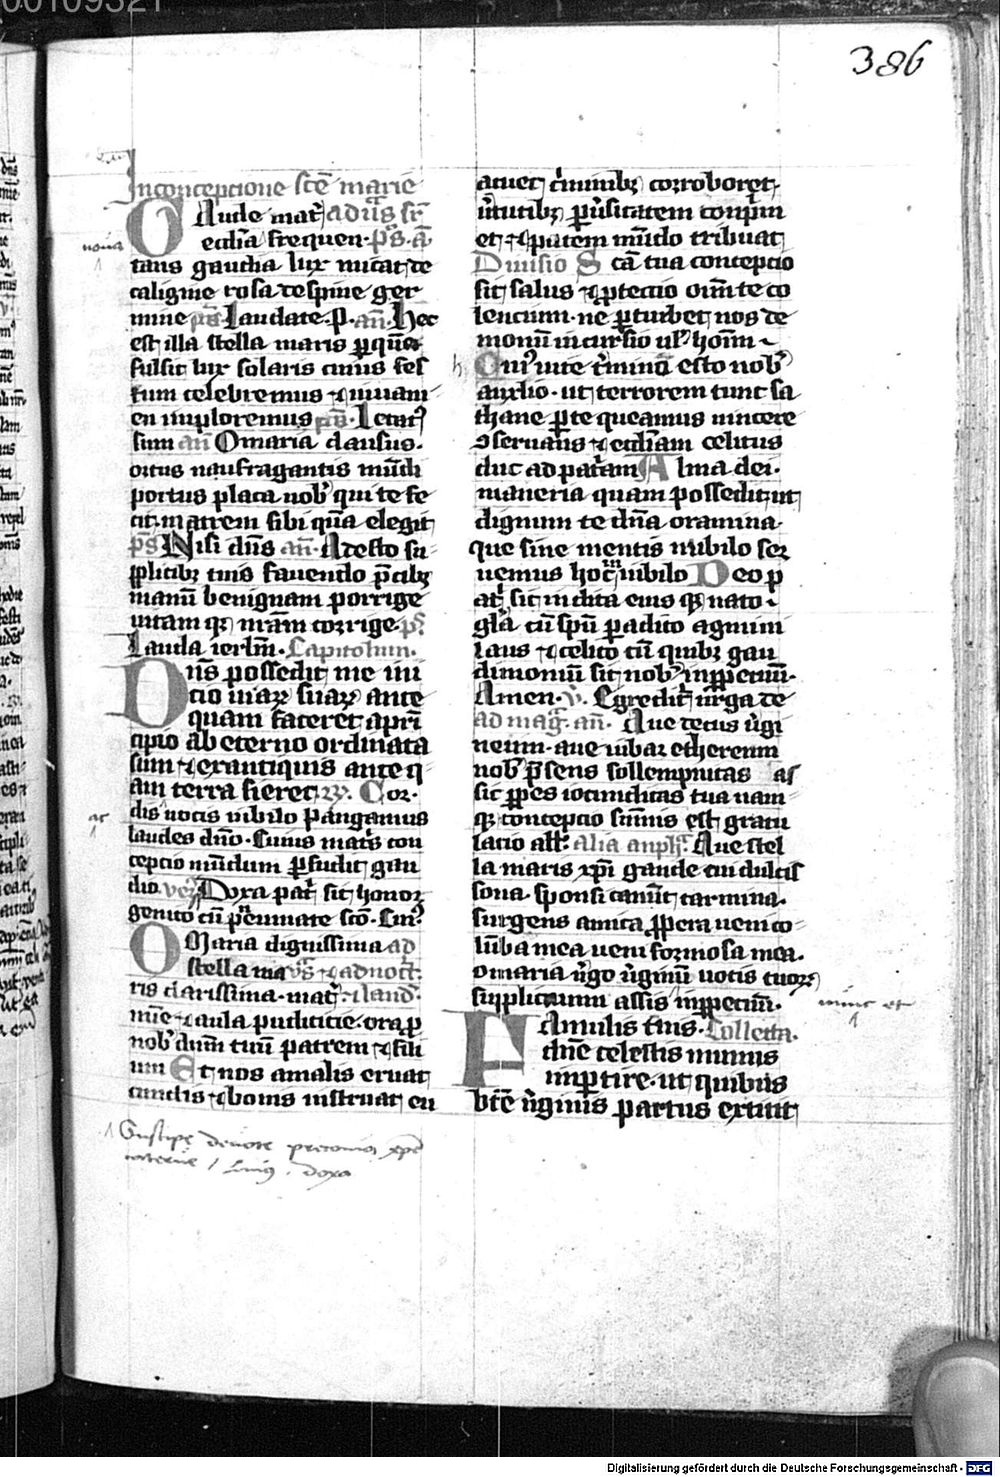 00109321
386
Inconceptione scē marie
Gaude mat̄ ad ūs sr̄
ecclia frequen ps. añ
noua
tans gaudia lux micat de
caligine rosa de spine ger
mine ps Laudate. p. añ. Hec
est illa stella maris p quā
fulsit lux solaris cuius fes
tum celebremus ⁊ viuam
en imploremus ps. Letat9
sum añ O maria clausus.
ortus naufragantis mūdi
portus placa nob qui te fe
cit matrem sibi quā elegit
ps Nisi dn̄s añ. Adesto su
pplicibz tuis fauendo p̄cibz
manū benignam porrige
uitam qz nr̄am corrige ps.
Lauda ierlm̄. Capitolum.
Dn̄s possedit me in i
cio uiaꝝ suaꝝ ante
quam faceret a prin
cipio ab eterno ordinata
sum ⁊ ex antiquis ante q
am terra fieret. Cor
dis uocis iubilo pangamus
ac
laudes dn̄o. Cuius mat̄s con
ceptio mūdum pfudit gau
dio. Doxa pat̄ sit honor
genito cū pneumate sc̄o. Cui9
O Maria dignissima ad
stella ma ⁊ ad noct.
ris clarissima. mat̄ laud.
mīe ⁊ aula pudicicie. ora p
nob dum tuū patrem ⁊ fili
um Et nos a malis eruat
cunctis ⁊ bonis instruat eu
deuote preconia xpē
cuius. doxa
acuet c̄minibz corroboret
ūtutibz puisitatem conprim
et ⁊ pacem mūdo tribuat
Diuisio Scā tua conceptio
sit salus ⁊ ptectio oīm te co
lencium. ne pturbet nos de
monū incursio ul homī
Cui9 uite t̄mino esto nob
auxilio. ut terrorem tunc sa
thane p te queamus uincere
ↄseruans ⁊ eccliam celitus
duc ad pat̄am Alma dei.
maneria quam possedit ut
dignum te dn̄a oramina
que sine mentis nubilo ser
uemus hoc iubilo Deo p
at̄ sit indita eius qz nato
gl̄a cū spū padito agmini
laus ⁊ celico cū quibz gau
dimonium sit nob inppetuū.
Amen. v. Egredit̄ uirga de
ad mag. añ. Aue decus ūgi
neum. aue iubar ethereum
nob p̄sens sollempnitas as
sit ppes iocunditas tua nam
qz conceptio sūmis est gratu
lacio all. Alia anph. Aue stel
la maris xp̄i gaude cui dulcis
sona. sponsi canūt carmina.
surgens amica ppera ueni co
lūba mea ueni formosa mea.
o maria ūgo ūginū uotis tuoꝝ
supplicantum assis inppetuū.
nunc et
Famulis tuis. Collecta.
dn̄e celestis munus
impertire. ut quibus
btē ūginis partus extitit
Digitalisierung gefördert durch die Deutsche Forschungsgemeinschaft - DFG